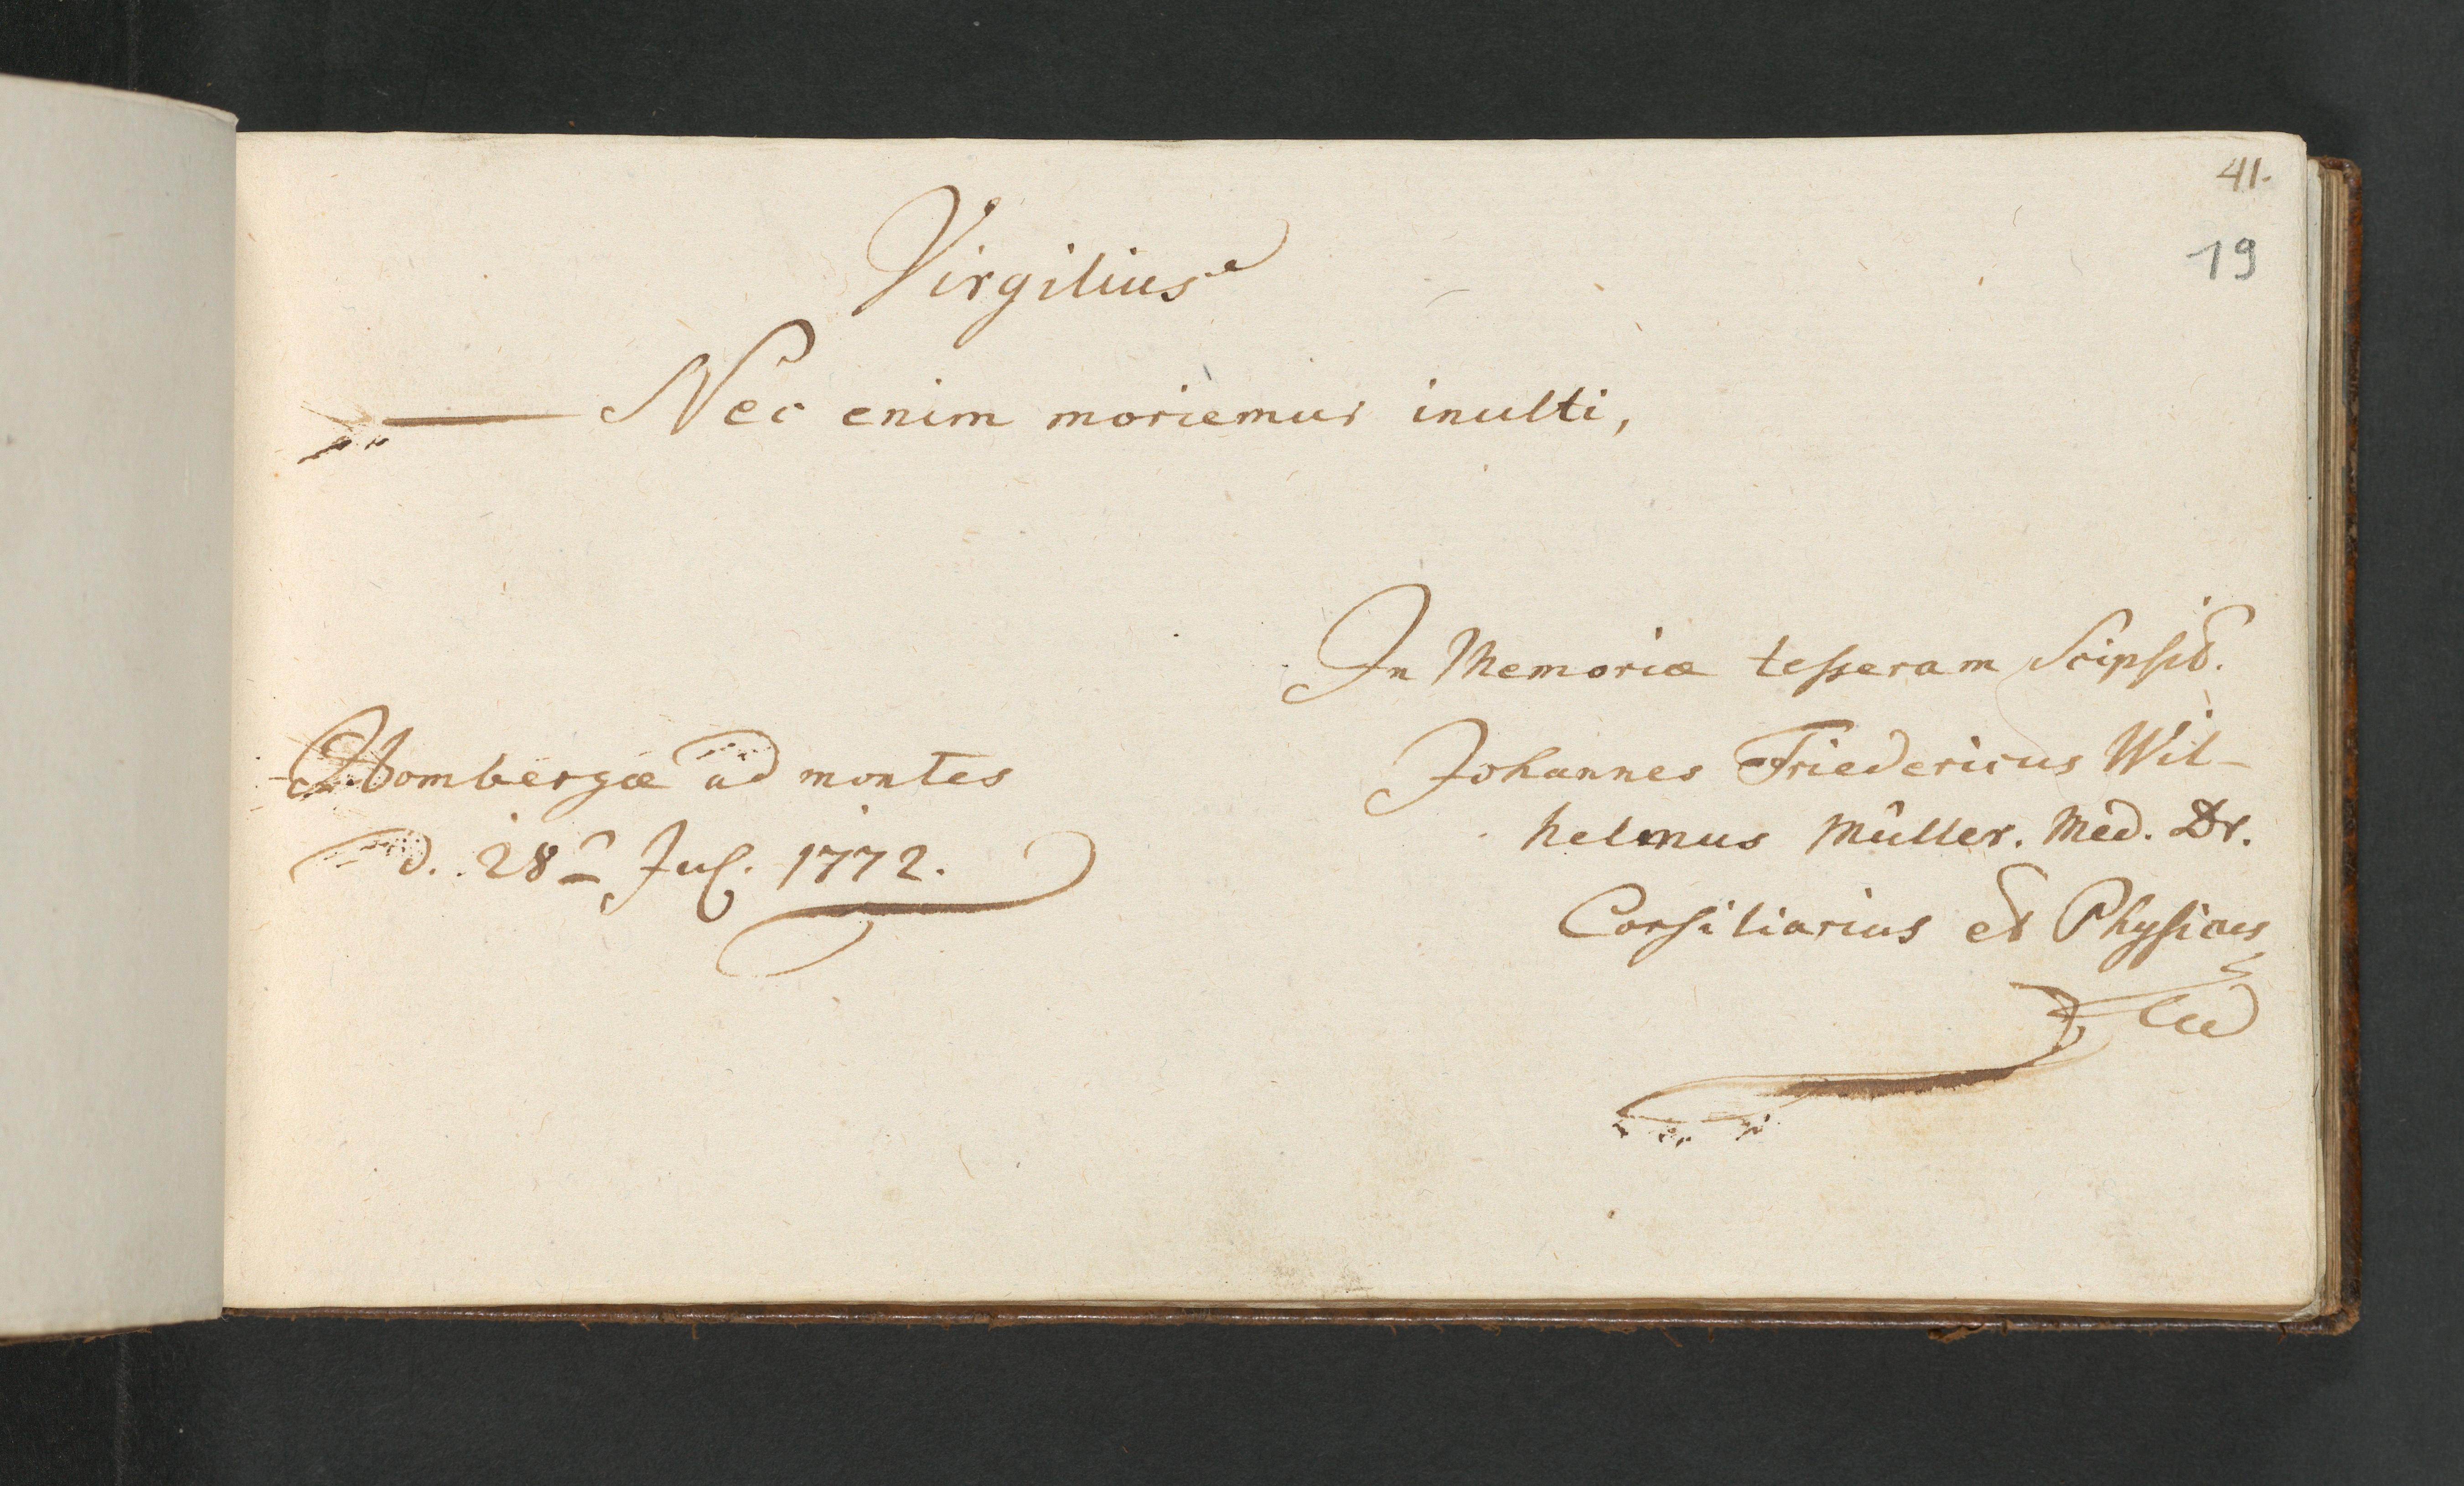 41.
19
Virgilius
Nec enim moriemur inulti,
In Memoriæ tesseram Scripsit.
Hombergæ ad montes
d. 28 Jul. 1772.
Johannes Friedericus Wil-
helmus Müller. Med. Dr.
Consiliarius et Physicus